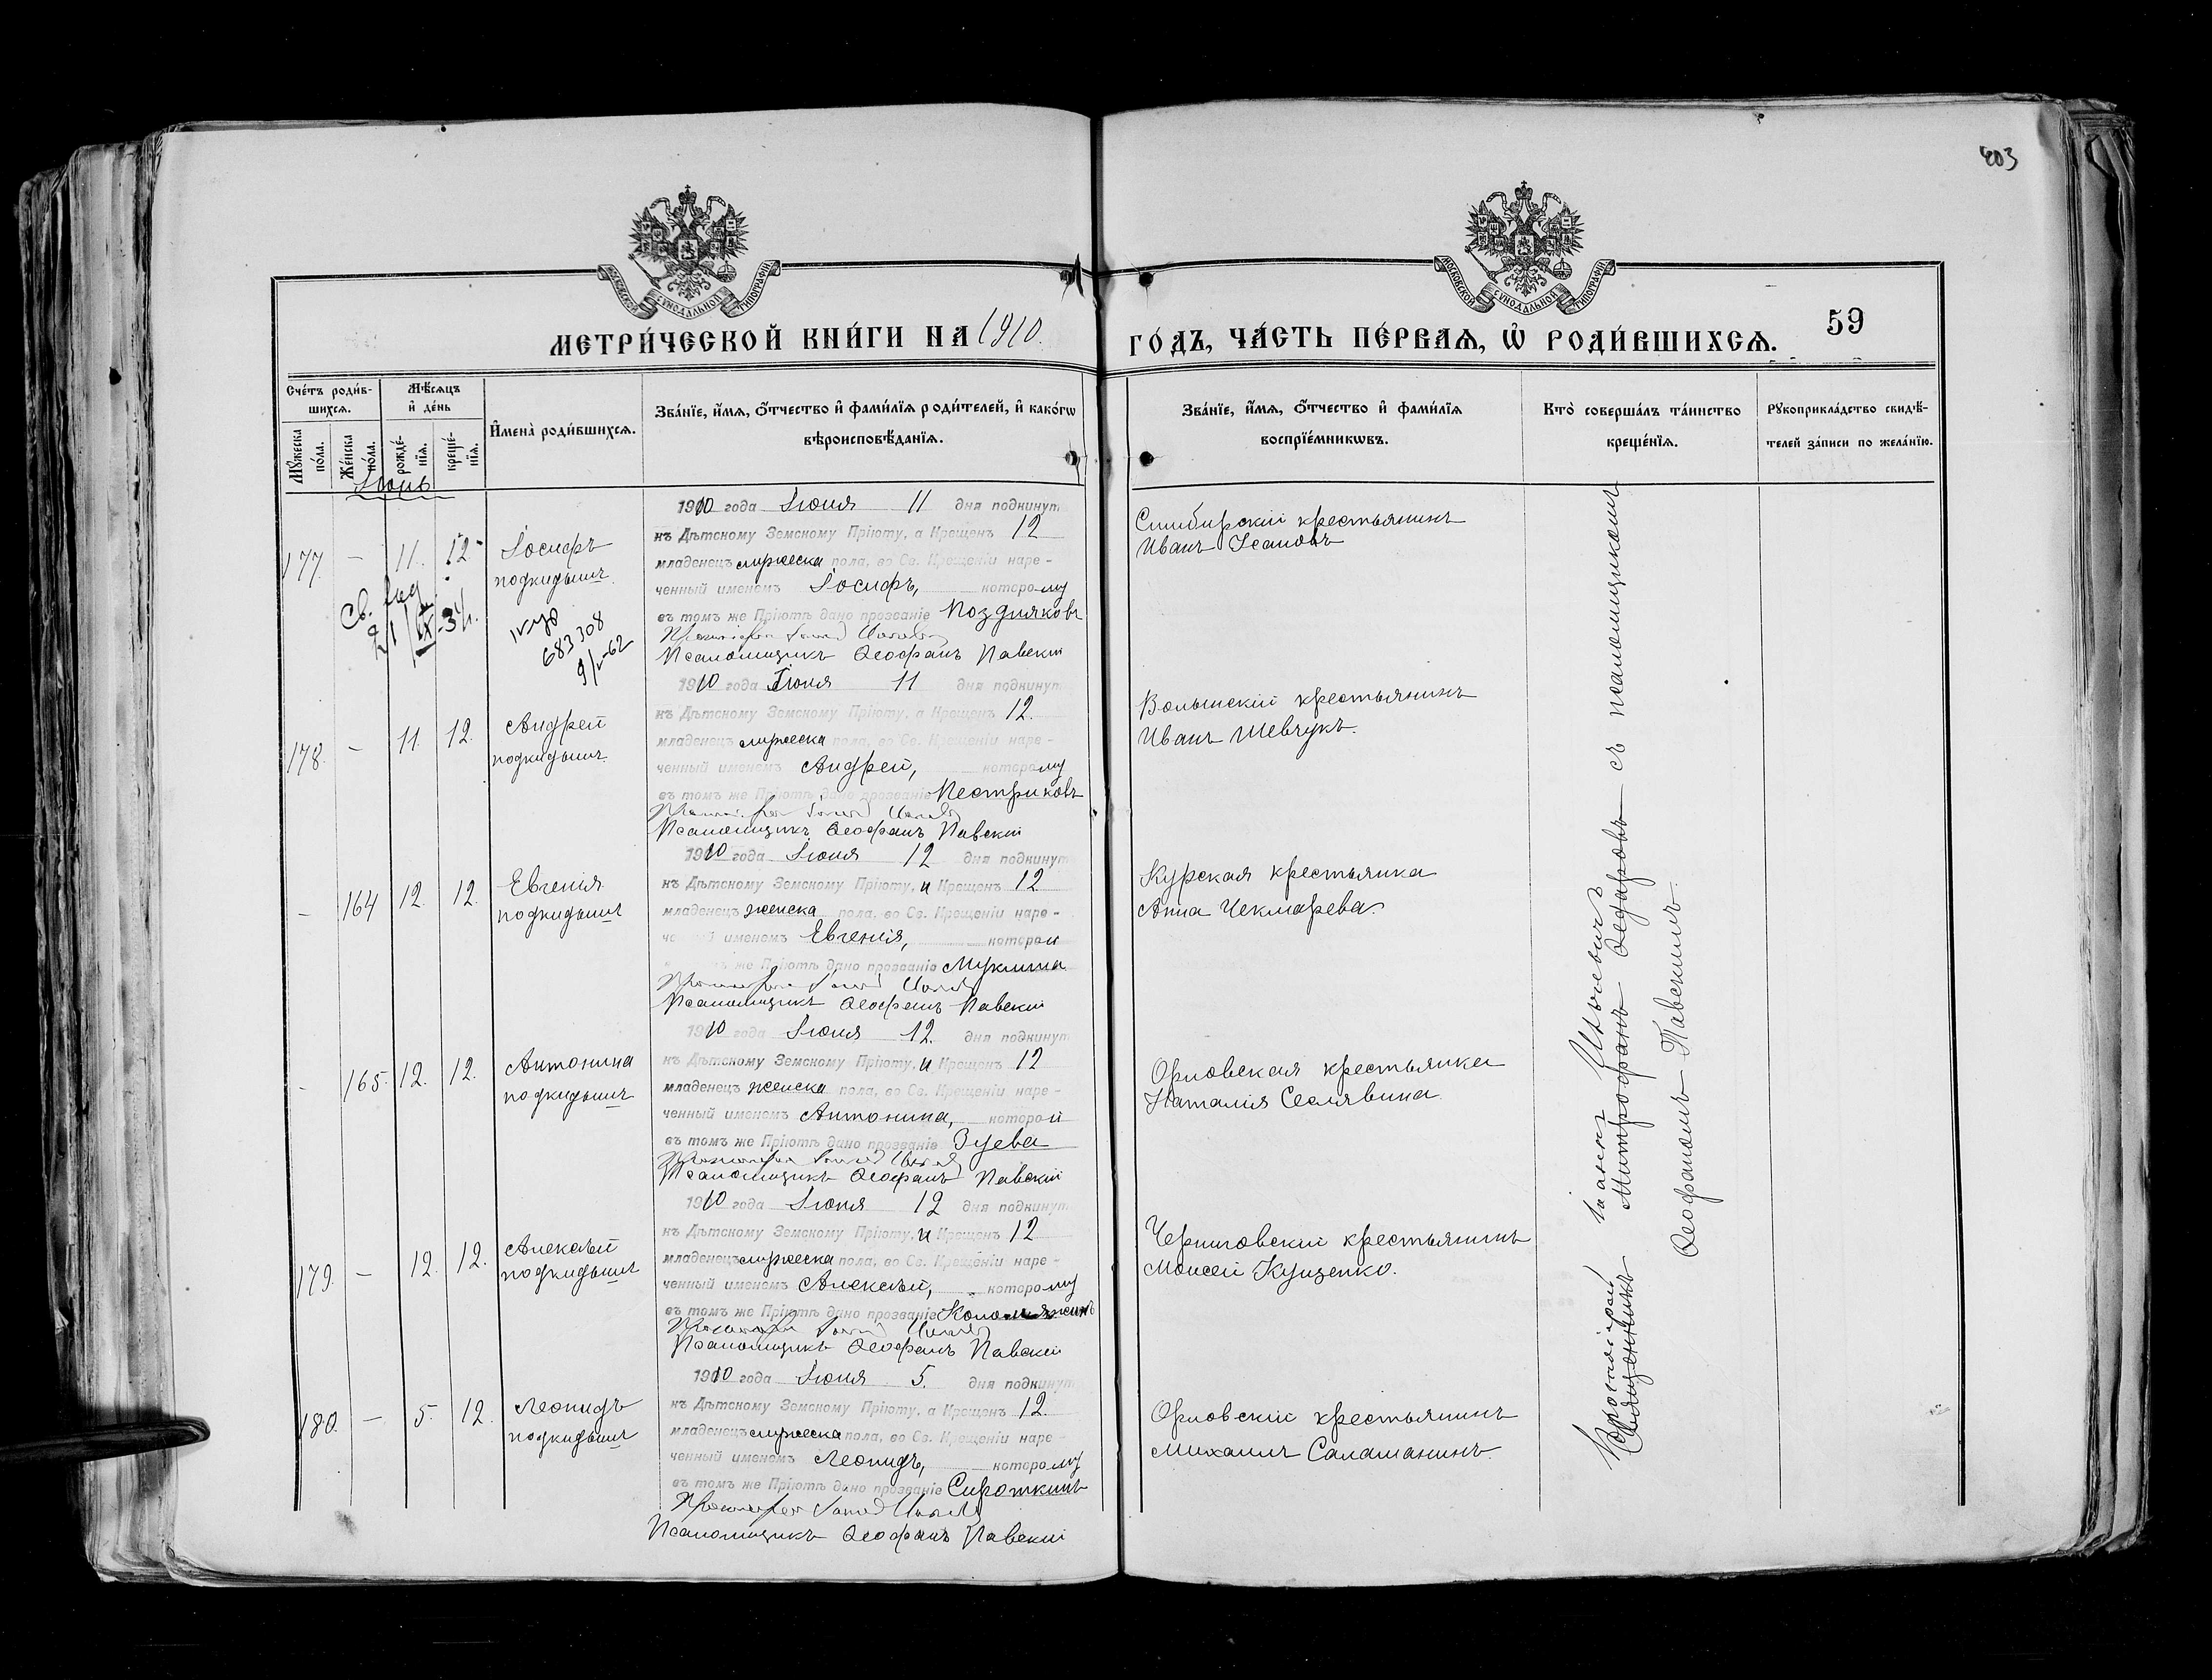 403
МОСКОВСКОЙ СѴНОДАЛЬНОЙ ТИПОГРАФІИ
МОСКОВСКОЙ СѴНОДАЛЬНОЙ ТИПОГРАФІИ
МЕТРИ́ЧЕСКОЙ КНИ́ГИ НА 1910.
ГО́ДЪ, ЧА́СТЬ ПЕ́РВАѦ, Ѡ҆ РОДИ́ВШИХСѦ. 59
Сче́тъ роди́в-
шихсѧ.
Мѣ́сѧцъ
и҆ де́нь
И҆мена̀ роди́вшихсѧ.
Зва́нїе, и҆́мѧ, ѻ҆́тчество и҆ фами́лїѧ роди́телей, и҆ како́гѡ
вѣроисповѣ́данїѧ.
Мꙋ́жеска
по́ла.
Же́нска
по́ла.
рожде́-
нїѧ.
креще́-
нїѧ.
Зва́нїе, и҆́мѧ, ѻ҆́тчество и҆ фами́лїѧ
воспрїе́мникѡвъ.
Кто̀ соверша́лъ та́инство
креще́нїѧ.
Рꙋкоприкла́дство свидѣ́-
телей за́писи по жела́нїю.
Іюнь
177. – 11. 12
Іосифъ
подкидышъ.
1910 года Іюня 11 дня подкинут
къ Дѣтскому Земскому Пріюту, а Крещенъ 12
младенецъ мужеска пола, во Св. Крещеніи наре-
ченный именемъ Іосифъ, которому
въ томъ же Пріютѣ дано прозваніе Поздняковъ
Псаломщикъ Ѳеофанъ Павскій
Симбирскій крестьянинъ
Иванъ Исаповъ
683308
9/V-62
178. – 11. 12.
Андрей
подкидышъ.
1910 года Іюня 11 дня подкинут
къ Дѣтскому Земскому Пріюту, а Крещенъ 12.
младенецъ мужеска пола, во Св. Крещеніи наре-
ченный именемъ Андрей, которому
въ томъ же Пріютѣ дано прозваніе Пестриковъ
Псаломщикъ Ѳеофанъ Павскій
Волынскій крестьянинъ
Иванъ Шевчукъ.
– 164 12. 12.
Евгенія
подкидышъ
1910 года Іюня 12 дня подкинут
къ Дѣтскому Земскому Пріюту, и Крещенъ 12
младенецъ женска пола, во Св. Крещеніи наре-
ченный именемъ Евгенія, которой
же Пріютѣ дано прозваніе Муклина
Псаломщикъ Ѳеофанъ Павскій
Курская крестьянка
Анна Чекмарева.
– 165. 12. 12.
Антонина
подкидышъ
1910 года Іюня 12. дня подкинут
къ Дѣтскому Земскому Пріюту, и Крещенъ 12
младенецъ женска пола, во Св. Крещеніи наре-
ченный именемъ Антонина, которой
въ томъ же Пріютѣ дано прозваніе Зуева
Псаломщикъ Ѳеофанъ Павскій
Орловская крестьянка
Наталія Селявина.
179. – 12. 12.
Алексѣй
подкидышъ
1910 года Іюня 12 дня подкинут
къ Дѣтскому Земскому Пріюту, и Крещенъ 12
младенецъ мужеска пола, во Св. Крещеніи наре-
ченный именемъ Алексѣй, которому
въ томъ же Пріютѣ дано прозваніе
Псаломщикъ Ѳеофанъ Павскій
Черниговскій крестьянинъ
Моисей Куценко.
180. – 5. 12.
Леонидъ
подкидышъ
1910 года Іюня 5. дня подкинут
къ Дѣтскому Земскому Пріюту, а Крещенъ 12.
младенецъ мужеска пола, во Св. Крещеніи наре-
ченный именемъ Леонидъ, которому
въ томъ же Пріютѣ дано прозваніе Сироткинъ
Псаломщикъ Ѳеофанъ Павскій
Орловскій крестьянинъ
Михаилъ Саламанинъ.
Протоіерей Іоаннъ Ильневичъ
Священникъ Митрофанъ Ѳедоровъ съ псаломщикомъ
Ѳеофаномъ Павскимъ.